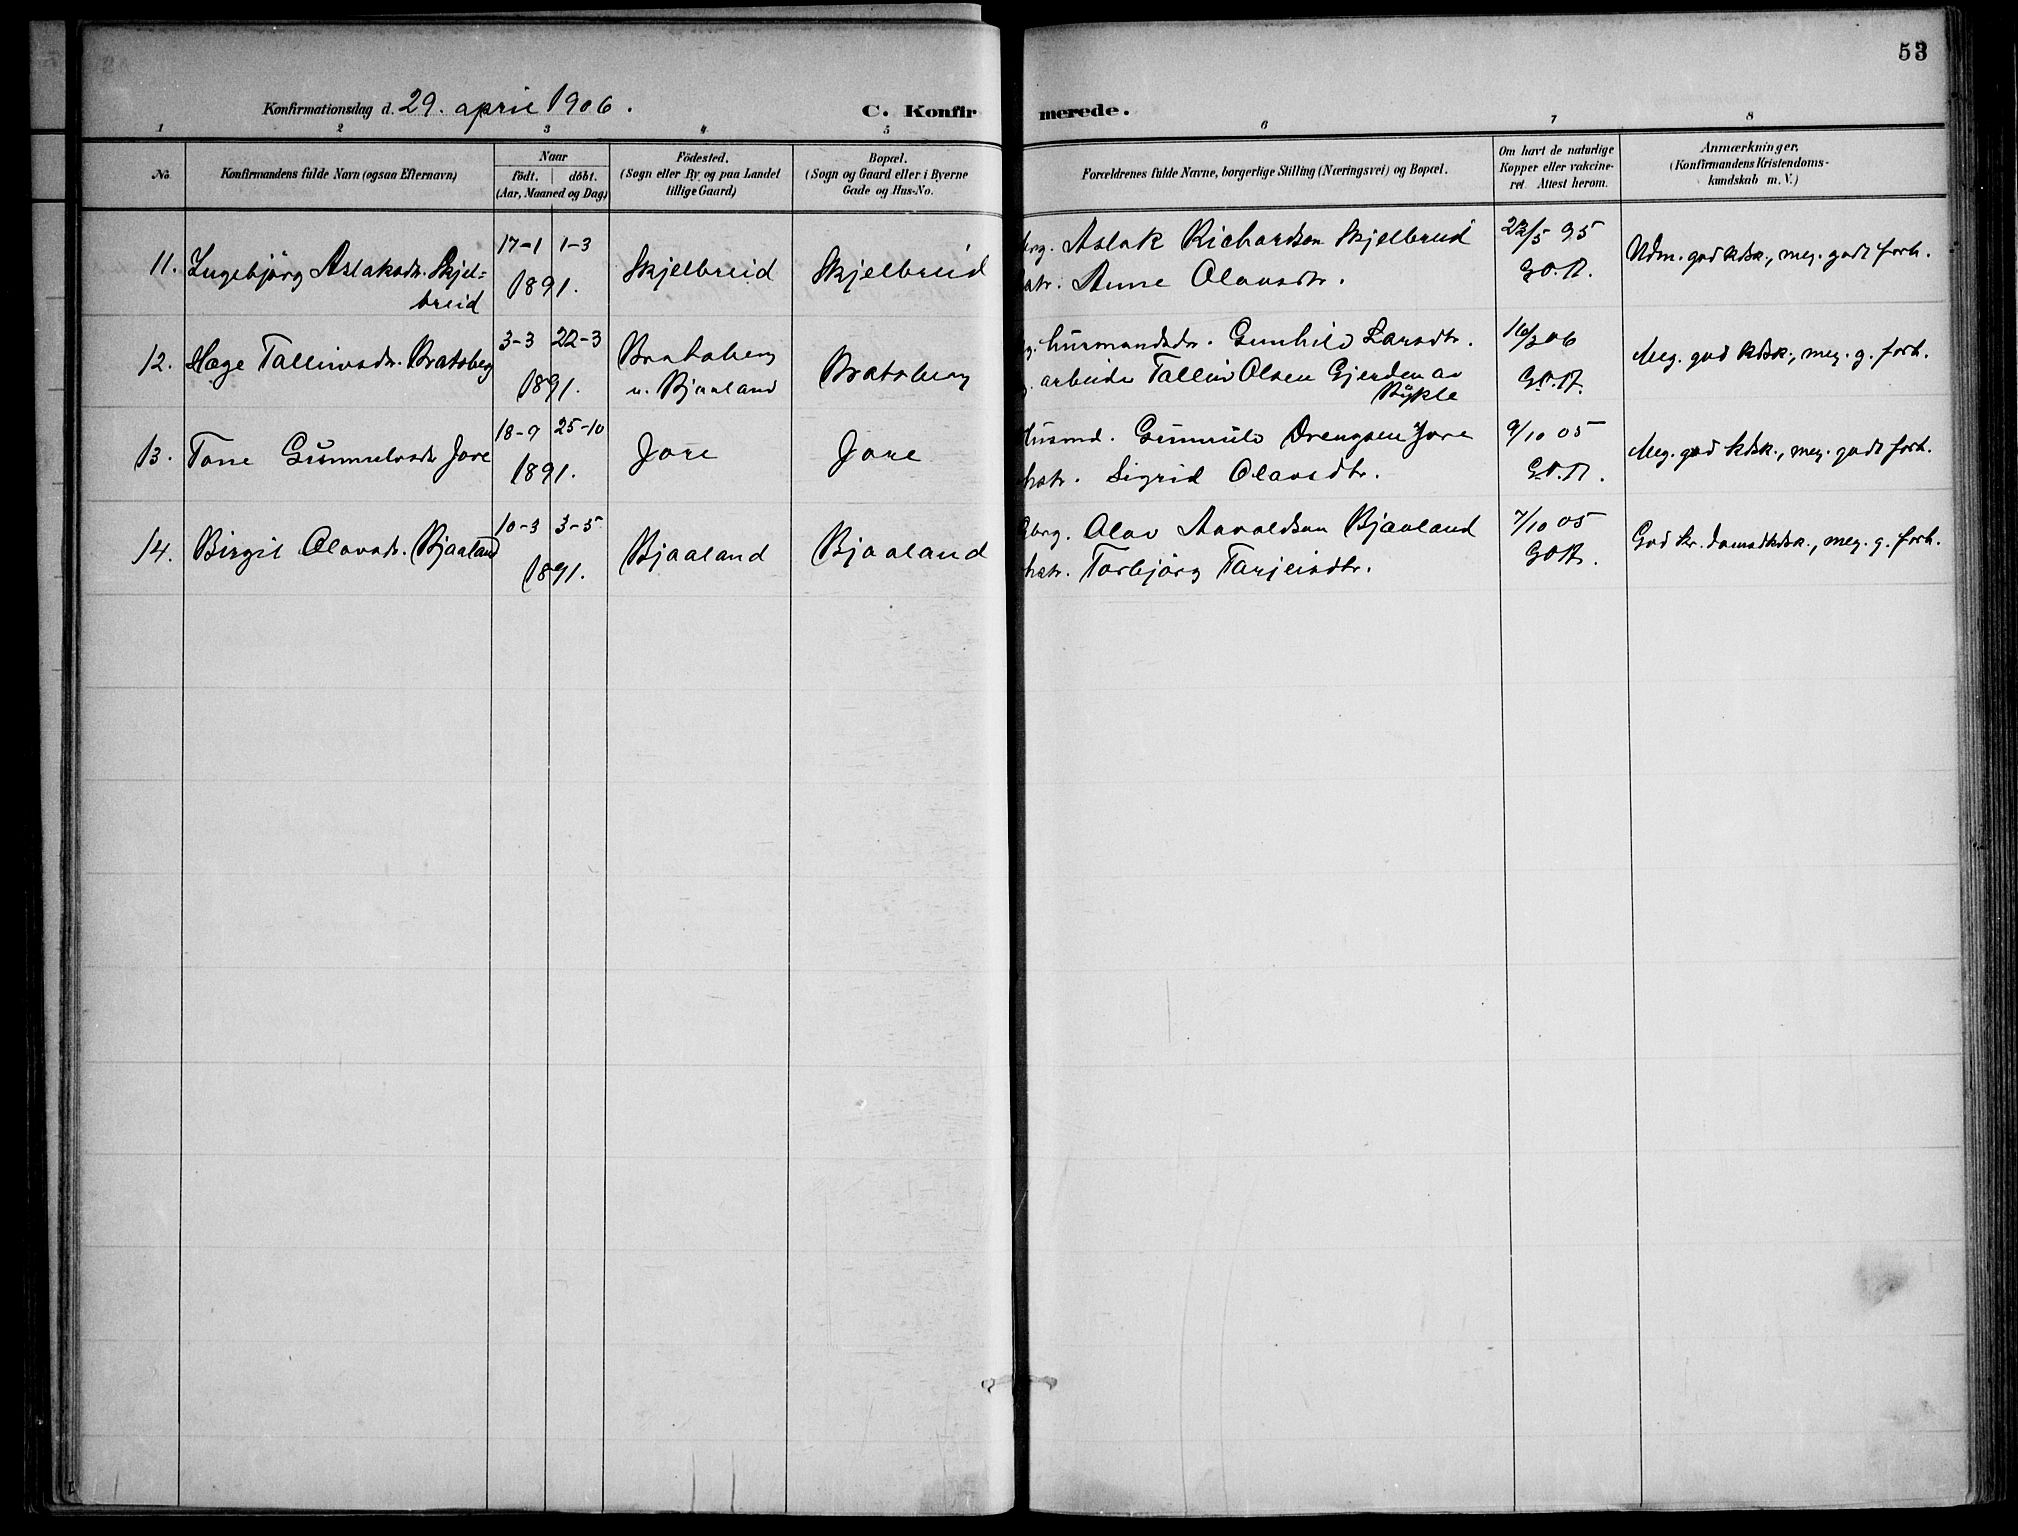 53
Konfirmationsdag d. 29. april 1906.
C. Konfirmerede.
1 2 3 4 5 6 7 8
No.
Konfirmandens fulde Navn (ogsaa Efternavn)
Naar
födt. | döbt.
(Aar, Maaned og Dag)
Födested.
(Sogn eller By og paa Landet
tillige Gaard)
Bopæl.
(Sogn og Gaard eller i Byerne
Gade og Hus-No.
Forældrenes fulde Navne, borgerlige Stilling (Næringsvei) og Bopæl.
Om havt de naturlige
Kopper eller vakcine-
ret. Attest herom.
Anmærkninger,
(Konfirmandens Kristendoms-
kundskab m. V.)
11. Ingebjörg Aslaksdr. Skjel=
breid
17-1 1-3
1891.
Skjelbreid
Skjelbreid
Aslak Richardson Skjelbreid
Anne Olavsdtr.
22/5 95
Udm. god kdsk., meg. godt forh.
12. Hæge Tallivsdr. Bratsberg
3-3 22-3
1891.
Bratsberg
u. Bjaaland
Bratsberg
husmandsdr. Gunhild Larsdtr.
arbeider Talleiv Olsen Gjerden av
Bykle
16/3 06
Meg. god kdsk., meg. g. forh.
13. Tone Gunnulvsdr. Jore
18-9 25-10
1891.
Jore
Jore
Husmd. Gunnulv Drengsen Jore
hstr. Sigrid Olavsdtr.
9/10 05
Meg. god kdsk., meg. godt forh.
14. Birgit Olavsdr. Bjaaland
10-3 3-5
1891.
Bjaaland
Bjaaland
Gbrg. Olav Aavoldson Bjaaland
hstr. Torbjörg Tarjeisdtr.
7/10 05
God kr.domskdsk., meg. g. forh.